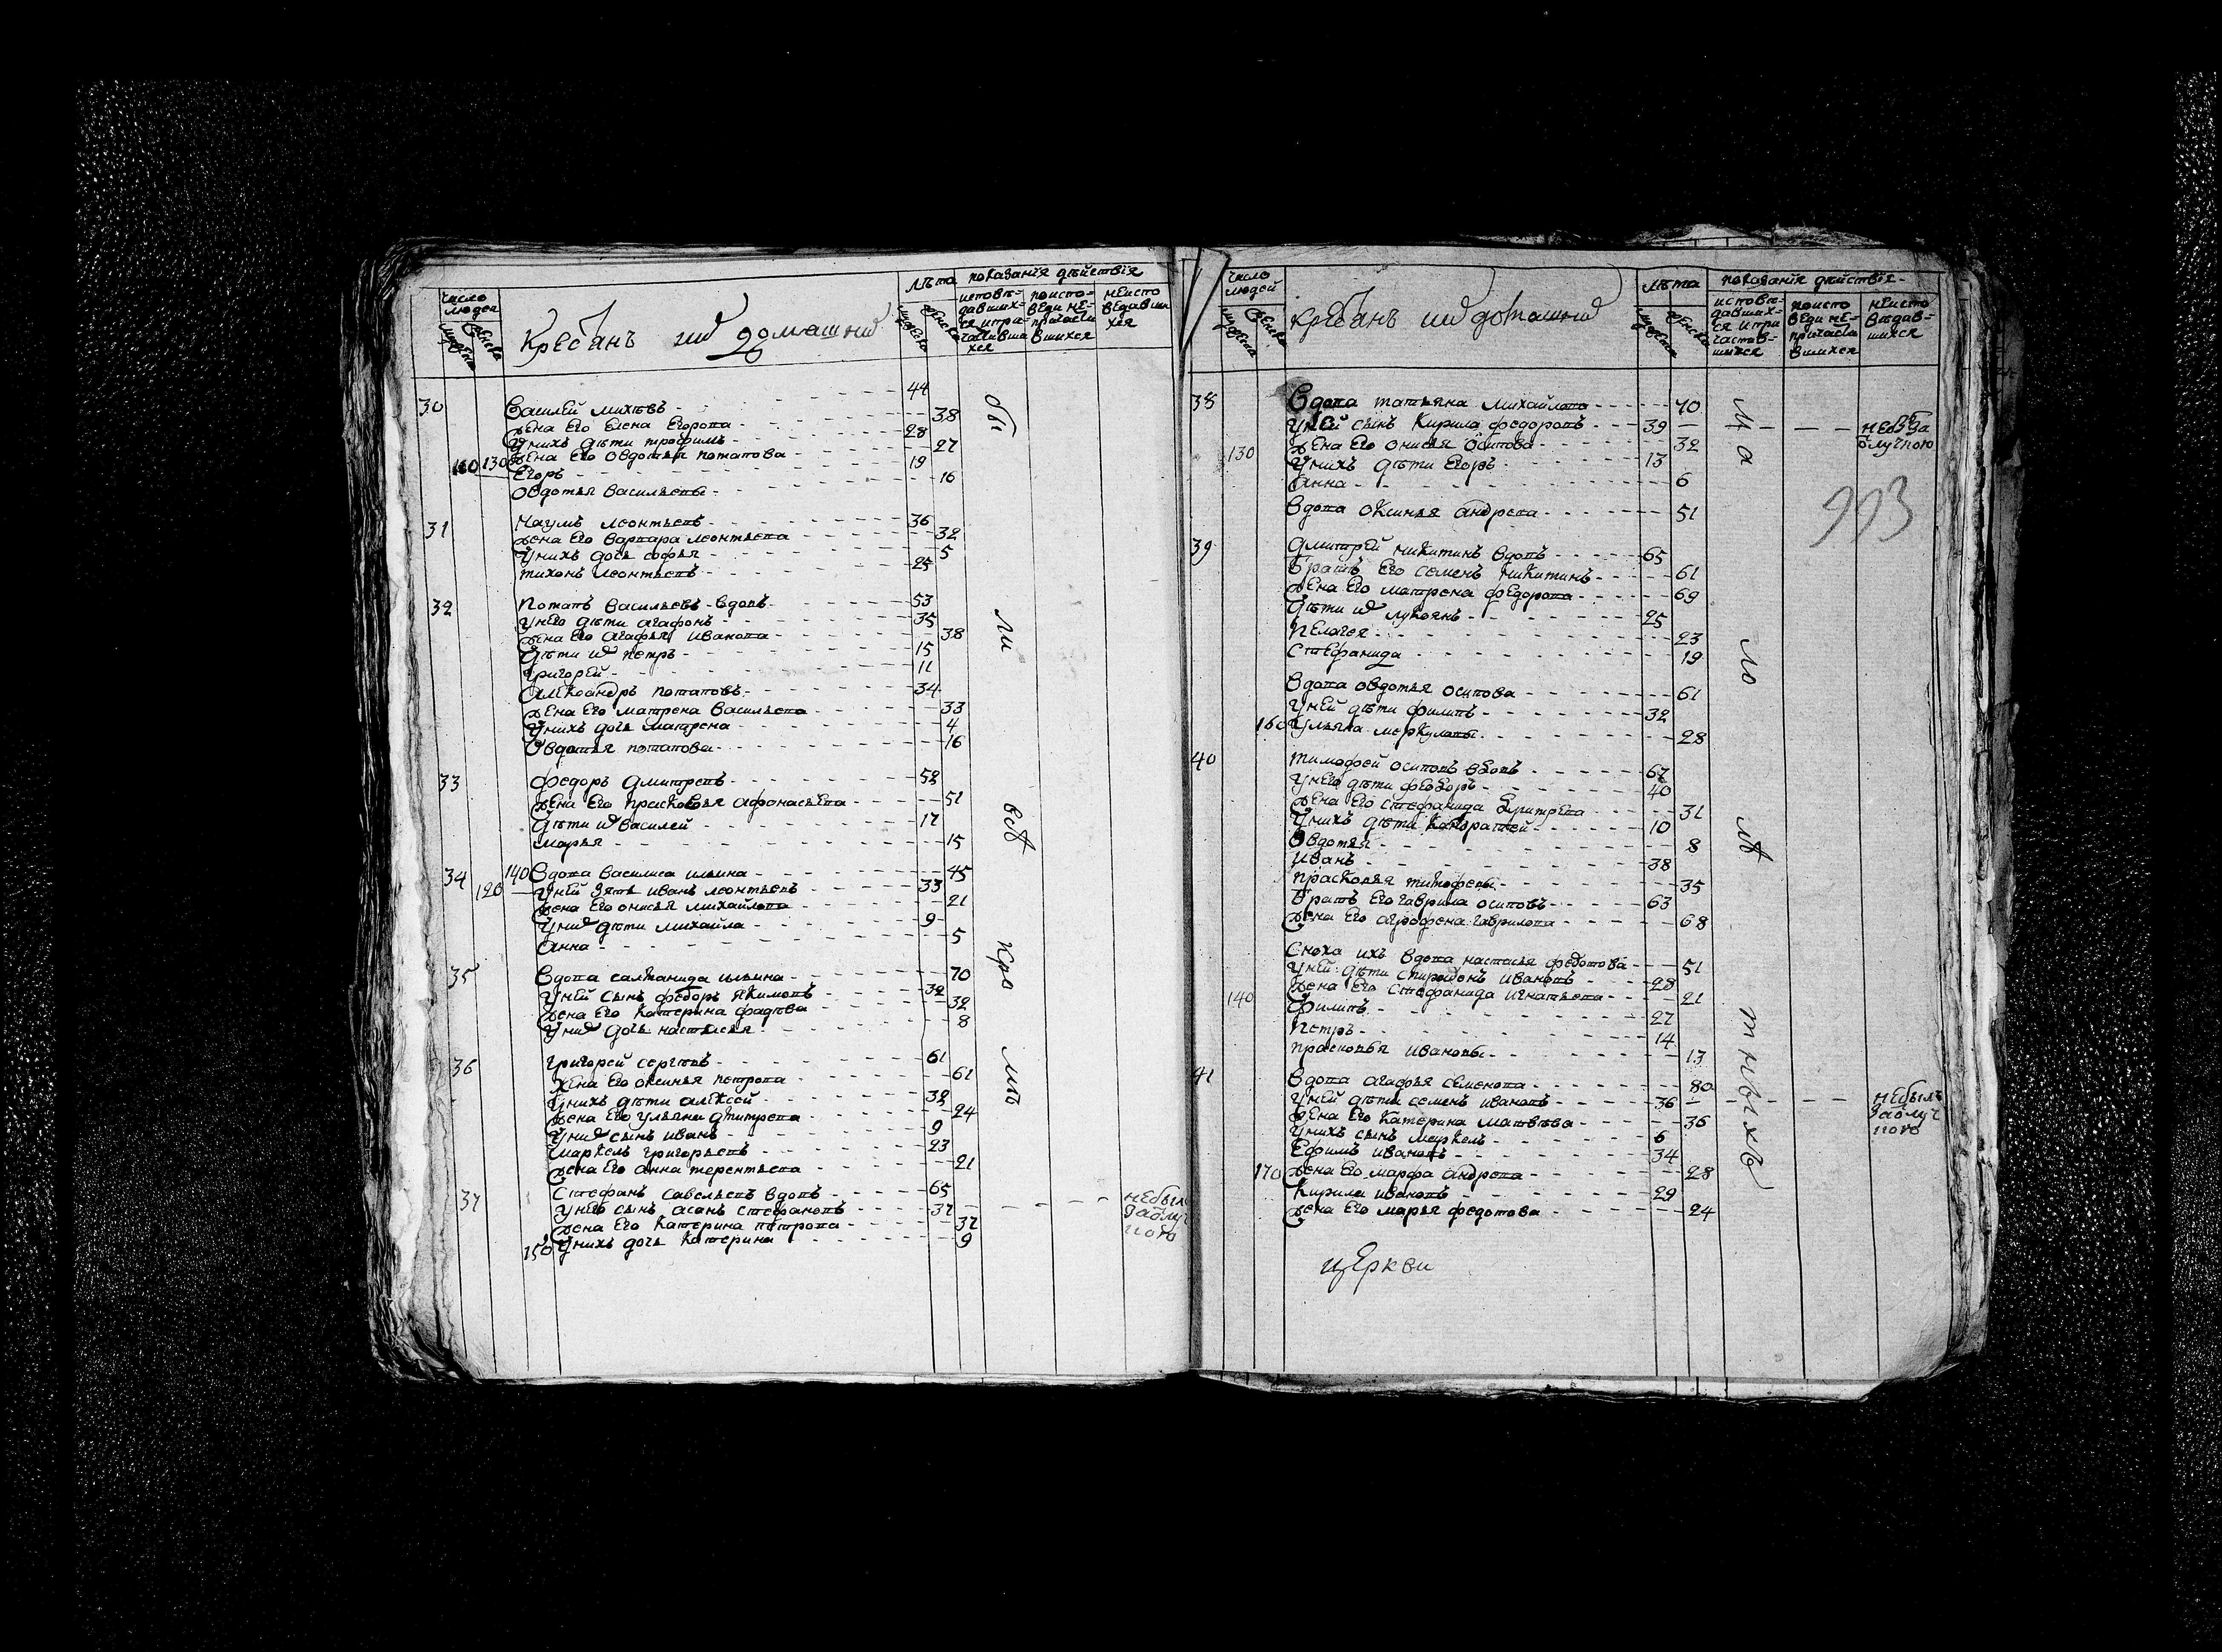 число людей
мужеско женско
крестьянъ ихъ домашнихъ
лѣта
мужеско женско
показанія дѣйствія
исповѣдавшихся и причастившихся
по исповеди не причастившихся
не исповедавшихся
30 Василей михѣевъ 44
жена его елена егорова 38
У нихъ дѣти трофимъ 28
жена его овдотья потапова 27
130 Егоръ 19
овдотья васильевы 16
31 Наумъ леонтьевъ 36
жена его варвара леонтьева 32
У нихъ дочь софья 5
тихонъ леонтьевъ 25
32 Потапъ васильевъ вдовъ 53
У него дѣти агафонъ 35
жена его агафья иванова 38
дѣти ихъ петръ 15
григорей 11
александръ потаповъ 34
жена его матрена васильева 33
У нихъ дочь матрена 4
Овдотья потапова 16
33 федоръ дмитревъ 58
жена его прасковья афонасьева 51
дѣти ихъ василей 17
марья 15
34 140 Вдова василиса ильина 45
120 У ней зять иванъ леонтьевъ 33
жена его онисья михайлова 21
У нихъ дѣти михайла 9
анна 5
35 Вдова ильина 70
У ней сынъ федоръ якимовъ 32
жена его катерина 32
У нихъ дочь настасья 8
36 григорей сергѣевъ 61
жена его оксинья петрова 61
У нихъ дѣти алексей 32
жена его ульяна дмитрева 24
У нихъ сынъ иванъ 9
маркелъ григорьевъ 23
жена его анна терентьева 21
37 Стефанъ савельевъ вдовъ 65
У него сынъ стефановъ 37 — — — не былъ за отлучкою
жена его катерина петрова 37
150 У нихъ дочь катерина 9
бы
ли
всѣ
кро
мѣ
число людей
мужеско женско
крестьянъ ихъ домашнихъ
лѣта
мужеско женско
показанія дѣйствія
исповѣдавшихся и причастившихся
по исповеди не причастившихся
не исповѣдавшихся
993
38 Вдова татьяна михайлова 70
У ней сынъ кирила федоровъ 39 — — —
130 жена его онисья осипова 32
У нихъ дѣти егоръ 13
анна 6
Вдова оксинья андрева 51
39 Дмитрей никитинъ вдовъ 65
братъ его семенъ никитинъ 61
жена его матрена федорова 69
дѣти ихъ лукоянъ 25
пелагея 23
стефанида 19
Вдова овдотья осипова 61
У ней дѣти филипъ 32
160 Ульяна меркуловы 28
40 Тимофей осиповъ вдовъ 67
У него дѣти федоръ 40
жена его стефанида дмитрева 31
У нихъ дѣти кондратей 10
Овдотья 8
иванъ 38
прасковья тимофевы 35
братъ его гаврила осиповъ 63
жена его агрофена гаврилова 68
Сноха ихъ вдова настасья федотова 51
У ней дѣти спиридонъ ивановъ 28
140 жена его стефанида игнатьева 21
Филипъ 27
петръ 14
прасковья ивановы 13
41 Вдова агафья семенова 80
У ней дѣти семенъ ивановъ 36 — — — не былъ за отлучкою
жена его катерина матвѣева 36
У нихъ сынъ маркелъ 6
Ефимъ ивановъ 34
170 жена его марфа андрева 28
кирила ивановъ 29
жена его марья федотова 24
ма
ло
лѣ
тныхъ
церкви